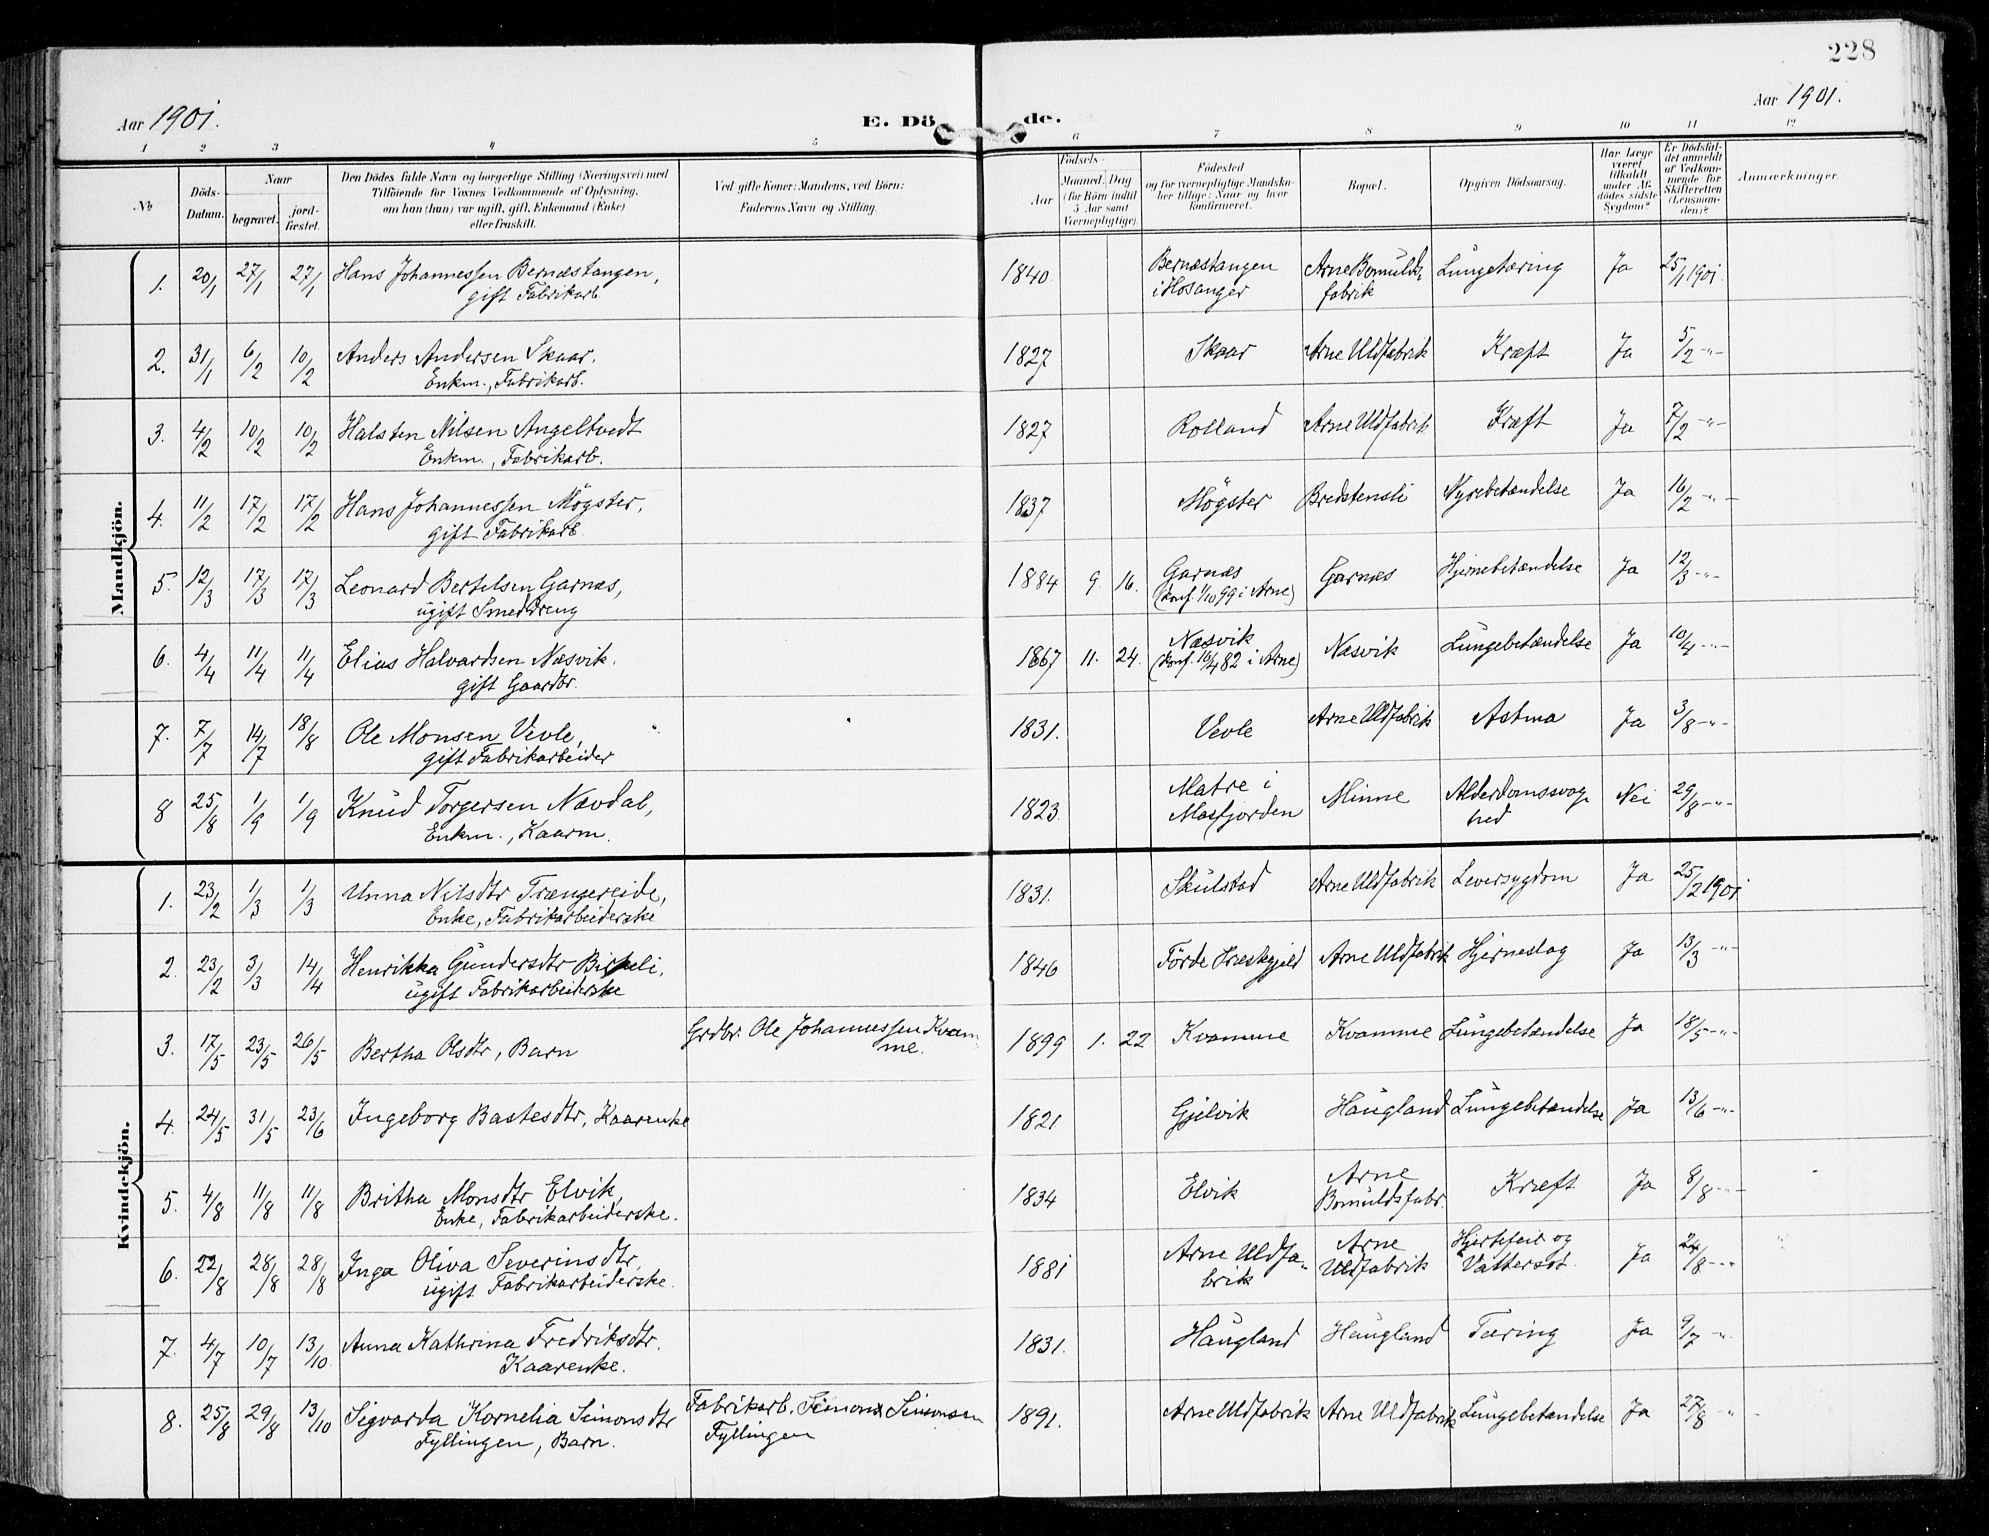 228
Aar 1901. E. Dö de. Aar 1901.
1 2 3 4 5 6 7 8 9 10 11 12
No
Döds-Datum.
Naar
begravet.
jord-fæstet.
Den Dödes fulde Navn og borgerlige Stilling (Næringsvei) med
Tilföiende for Voxnes Vedkommende af Oplysning,
om han (hun) var ugift, gift, Enkemand (Enke)
eller fraskilt.
Ved gifte Koner: Mandens, ved Börn:
Faderens Navn og Stilling.
Födsels-
Aar
Maaned. Dag
(for Börn indtil
5 Aar samt
Værnepligtige).
Födested
og for værnepligtige Mandska-
ber tillige: Naar og hvor
konfirmeret.
Bopæl.
Opgiven Dödsaarsag.
Har Læge
været
tilkaldt
under Af-
dödes sidste
Sygdom?
Er Dödsfal-
det anmeldt
af Vedkom-
mende for
Skifteretten
(Lensman-
den)?
Anmærkninger.
Mandkjön.
1. 20/1 27/1 27/1 Hans Johannessen Bernæstangen, 1840. Bernæstangen Arne Bomulds- Lungetæring Ja 25/1 1901.
gift Fabrikarb. i Hosanger fabrik
2. 31/1 6/2 10/2 Anders Andersen Skaar. 1827 Skaar Arne Uldfabrik Kræft Ja 5/2 -"-
Enkm., Fabrikarb.
3. 4/2 10/2 10/2 Halsten Nilsen Angeltvedt 1827 Rolland Arne Uldfabrik Kræft Ja 7/2 -"-
Enkm., Fabrikarb.
4. 11/2 17/2 17/2 Hans Johannessen Mögster, 1837 Mögster Bredstensli Nyrebetændelse Ja 16/2 -"-
gift Fabrikarb.
5. 12/3 17/3 17/3 Leonard Bertelsen Garnæs, 1884 9. 16. Garnæs Garnæs Hjernebetændelse Ja 12/3 -"-
ugift Smeddreng (konf. 1/10 99 i Arne)
6. 4/4 11/4 11/4 Elias Halvardsen Næsvik. 1867 11. 24. Næsvik Næsvik Lungebetændelse Ja 10/4 -"-
gift Gaardbr. (konf. 16/4 82 i Arne)
7. 7/7 14/7 18/8 Ole Monsen Vevle, 1831. Vevle Arne Uldfabrik Astma Ja 3/8 -"-
gift Fabrikarbeider
8 25/8 1/9 1/9 Knud Torgersen Nævdal, 1823. Matre i Minne Alderdomssvag- Nei 29/8 -"-
Enkm., Kaarm. Masfjorden hed
Kvindekjön.
1. 23/2 1/3 1/3 Unna Nilsdtr Trængereide, 1831. Skulstad Arne Uldfabrik Leversygdom Ja 25/2 1901
Enke, Fabrikarbeiderske
2. 23/2 3/3 14/4 Henrikka Gundersdtr Birkeli, 1846 Förde Præstegjeld Arne Uldfabrik Hjerneslag Ja 13/3 -"-
ugift Fabrikarbeiderske
3. 17/5 23/5 26/5 Bertha Olsdtr, Barn Grdbr. Ole Johannessen Kvam- 1899 1. 22 Kvamme Kvamme Lungebetændelse Ja 18/5 -"-
me.
4. 24/5 31/5 23/6 Ingeborg Bastesdtr, Kaarenke 1821 Gjelvik Haugland Lungebetændelse Ja 13/6 -"-
5. 4/8 11/8 11/8 Britha Monsdtr Elvik, 1834 Elvik Arne Kræft Ja 8/8 -"-
Enke, Fabrikarbeiderske. Bomuldsfabr.
6. 22/8 28/8 28/8 Inga Oliva Severinsdtr, 1881 Arne Uldfa- Arne Hjertefeil og Ja 24/8 -"-
ugift Fabrikarbeiderske. brik Uldfabrik Vattersot.
7. 4/7 10/7 13/10 Anna Kathrina Fredriksdtr. 1831. Haugland Haugland Tæring Ja 9/7 "
Kaarenke.
8. 25/8 29/8 13/10 Sigvarda Kornelia Simonsdtr Fabrikarb. Simon Simonsen 1891. Arne Uldfabrik Arne Uldfabrik Lungebetændelse Ja 27/8 "
Fyllingen, Barn. Fyllingen